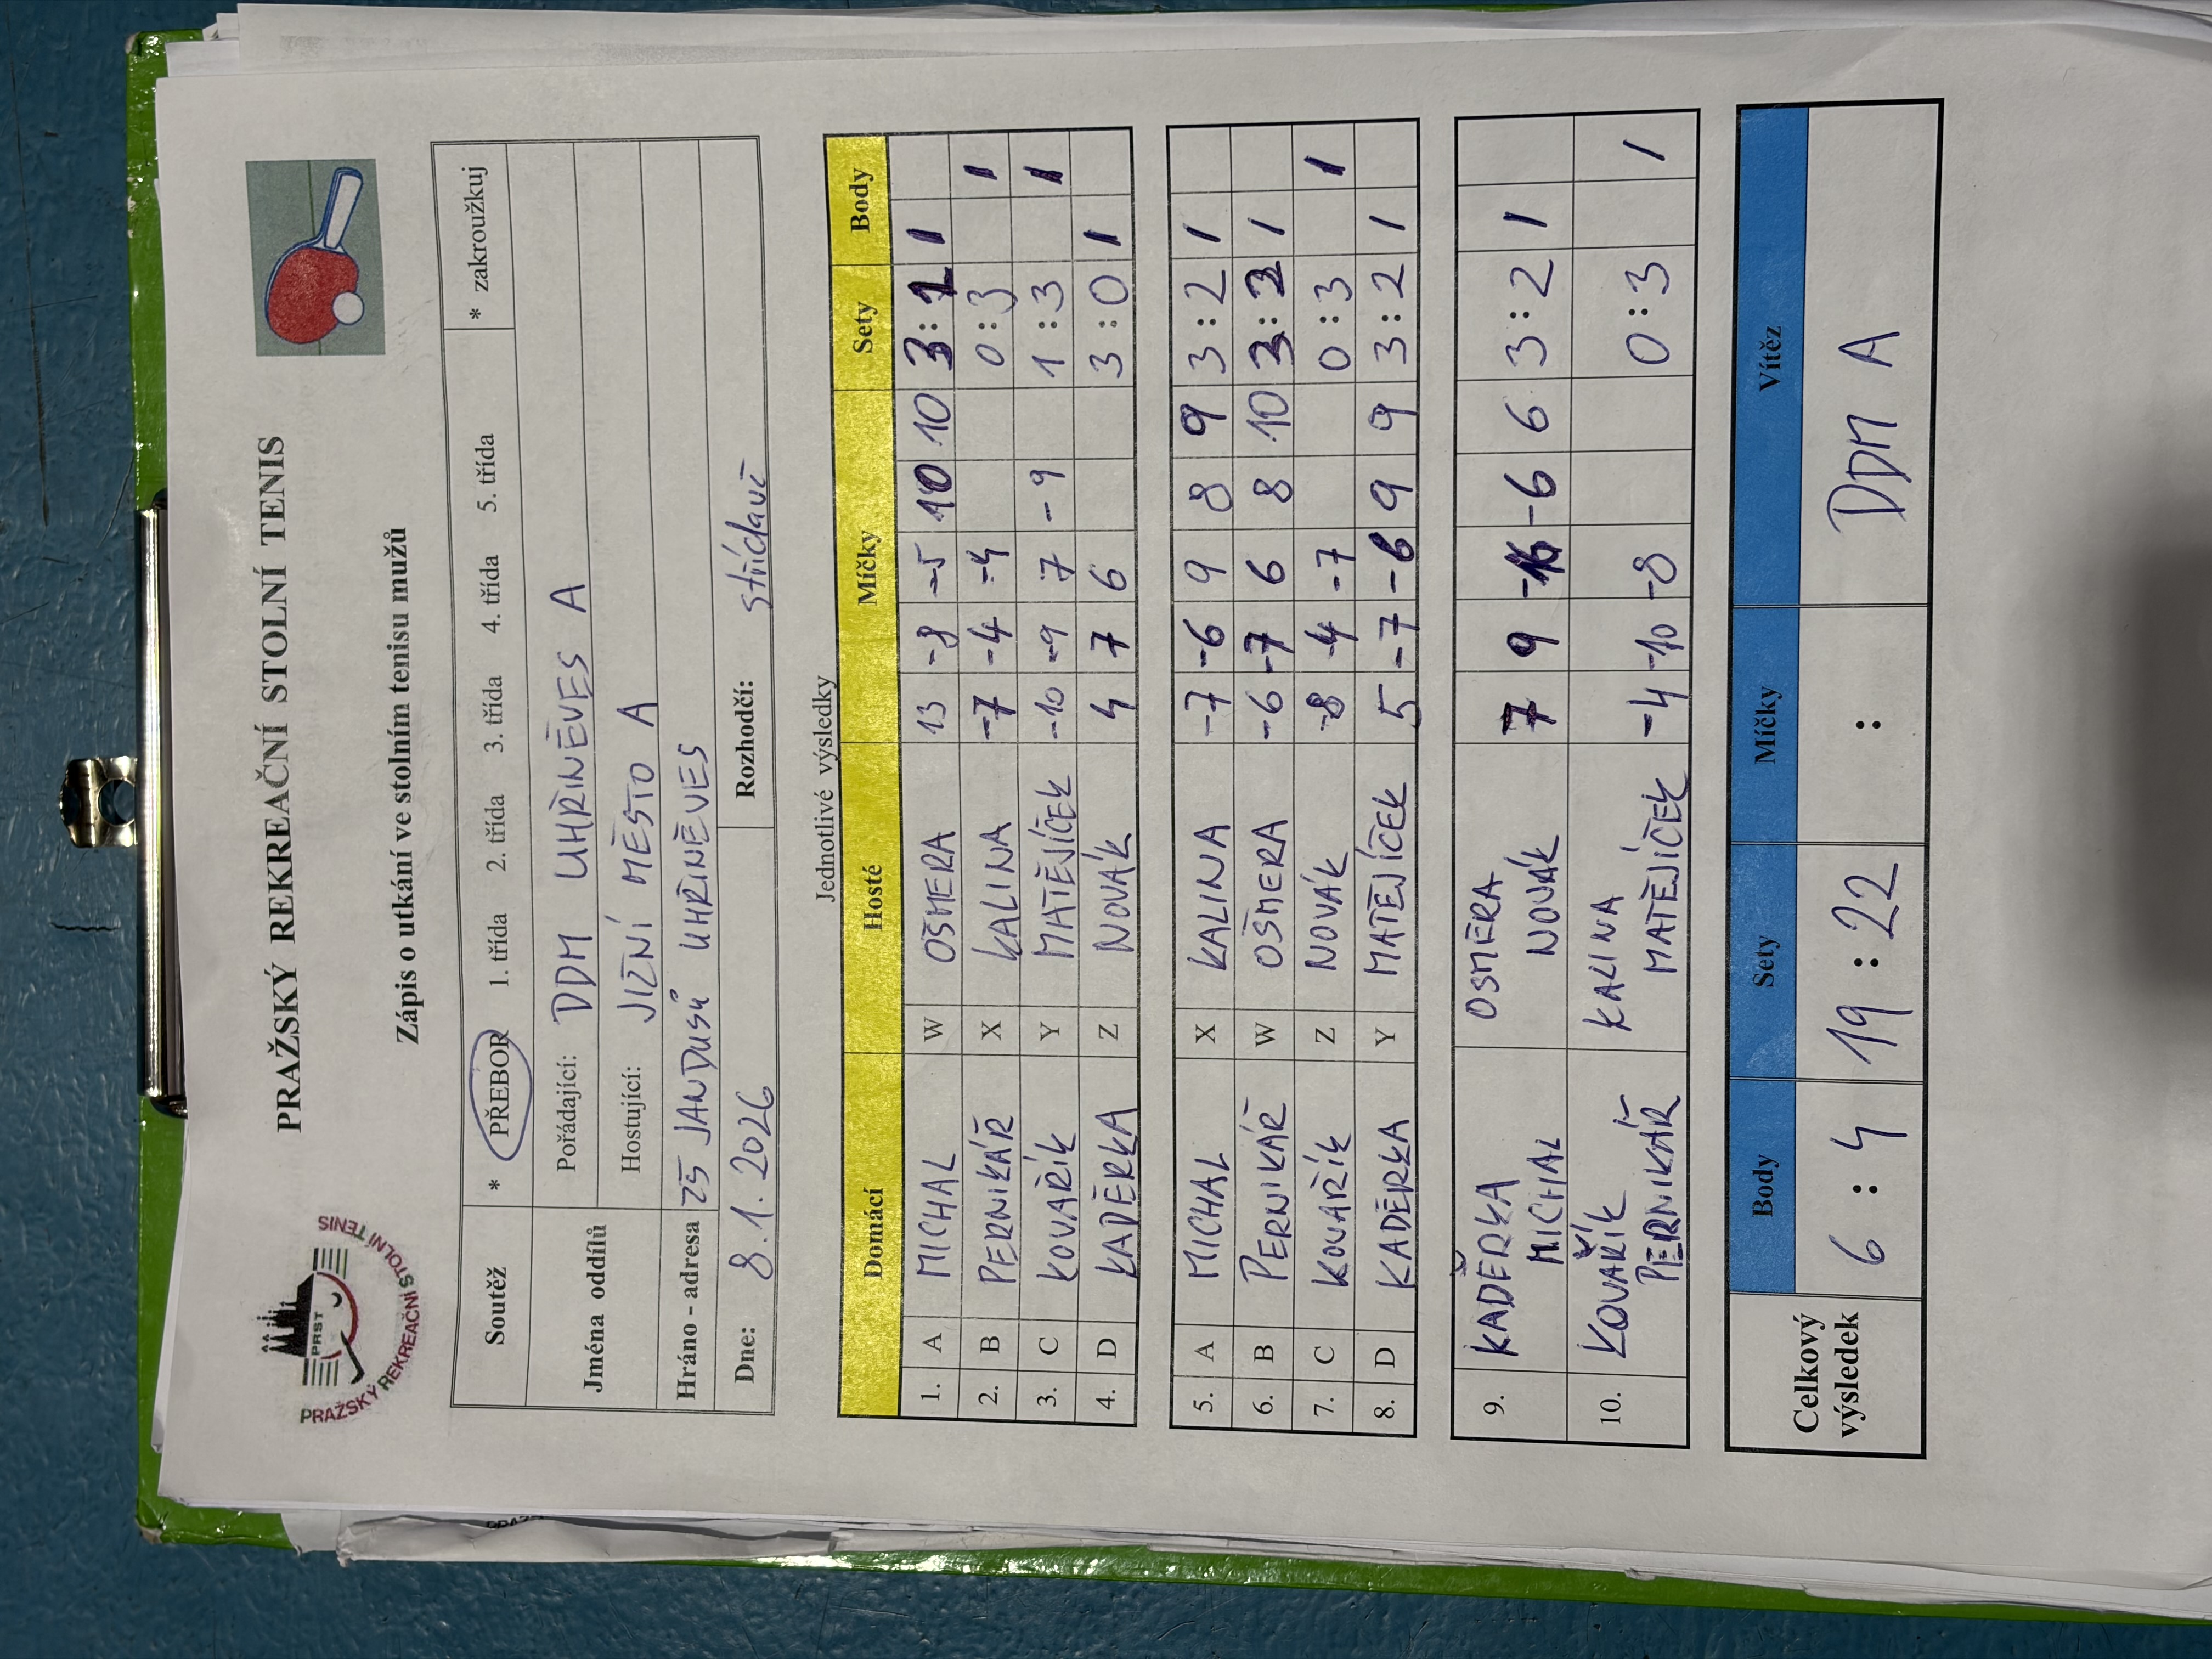 PRAŽSKÝ REKREAČNÍ STOLNÍ TENIS
PRST
PRAŽSKÝ REKREAČNÍ STOLNÍ TENIS
Zápis o utkání ve stolním tenisu mužů
Soutěž * PŘEBOR 1. třída 2. třída 3. třída 4. třída 5. třída * zakroužkuj
Jména oddílů
Pořádající: DDM UHŘINĚVES A
Hostující: JIŽNÍ MĚSTO A
Hráno - adresa ZŠ JANDUSŮ UHŘINĚVES
Dne: 8.1.2026 Rozhodčí: střídavě
Jednotlivé výsledky
Domácí Hosté Míčky Sety Body
1. A MICHAL W OŠMERA 13 -8 -5 10 10 3:2 1
2. B PERNIKÁŘ X KALINA -7 -4 -4 0:3 1
3. C KOVAŘÍK Y MATĚJÍČEK -10 -9 7 -9 1:3 1
4. D KADĚRKA Z NOVÁK 4 7 6 3:0 1
5. A MICHAL X KALINA -7 -6 9 8 9 3:2 1
6. B PERNIKÁŘ W OŠMERA -6 -7 6 8 10 3:2 1
7. C KOVAŘÍK Z NOVÁK -8 -4 -7 0:3 1
8. D KADĚRKA Y MATĚJÍČEK 5 -7 -6 9 9 3:2 1
9. KADĚRKA OSMĚRA
MICHAL NOVÁK 7 9 -16 -6 6 3:2 1
10. KOVAŘÍK KALINA
PERNIKÁŘ MATĚJÍČEK -4 -10 -8 0:3 1
Celkový výsledek
Body Sety Míčky Vítěz
6 : 4 19 : 22 : DDM A